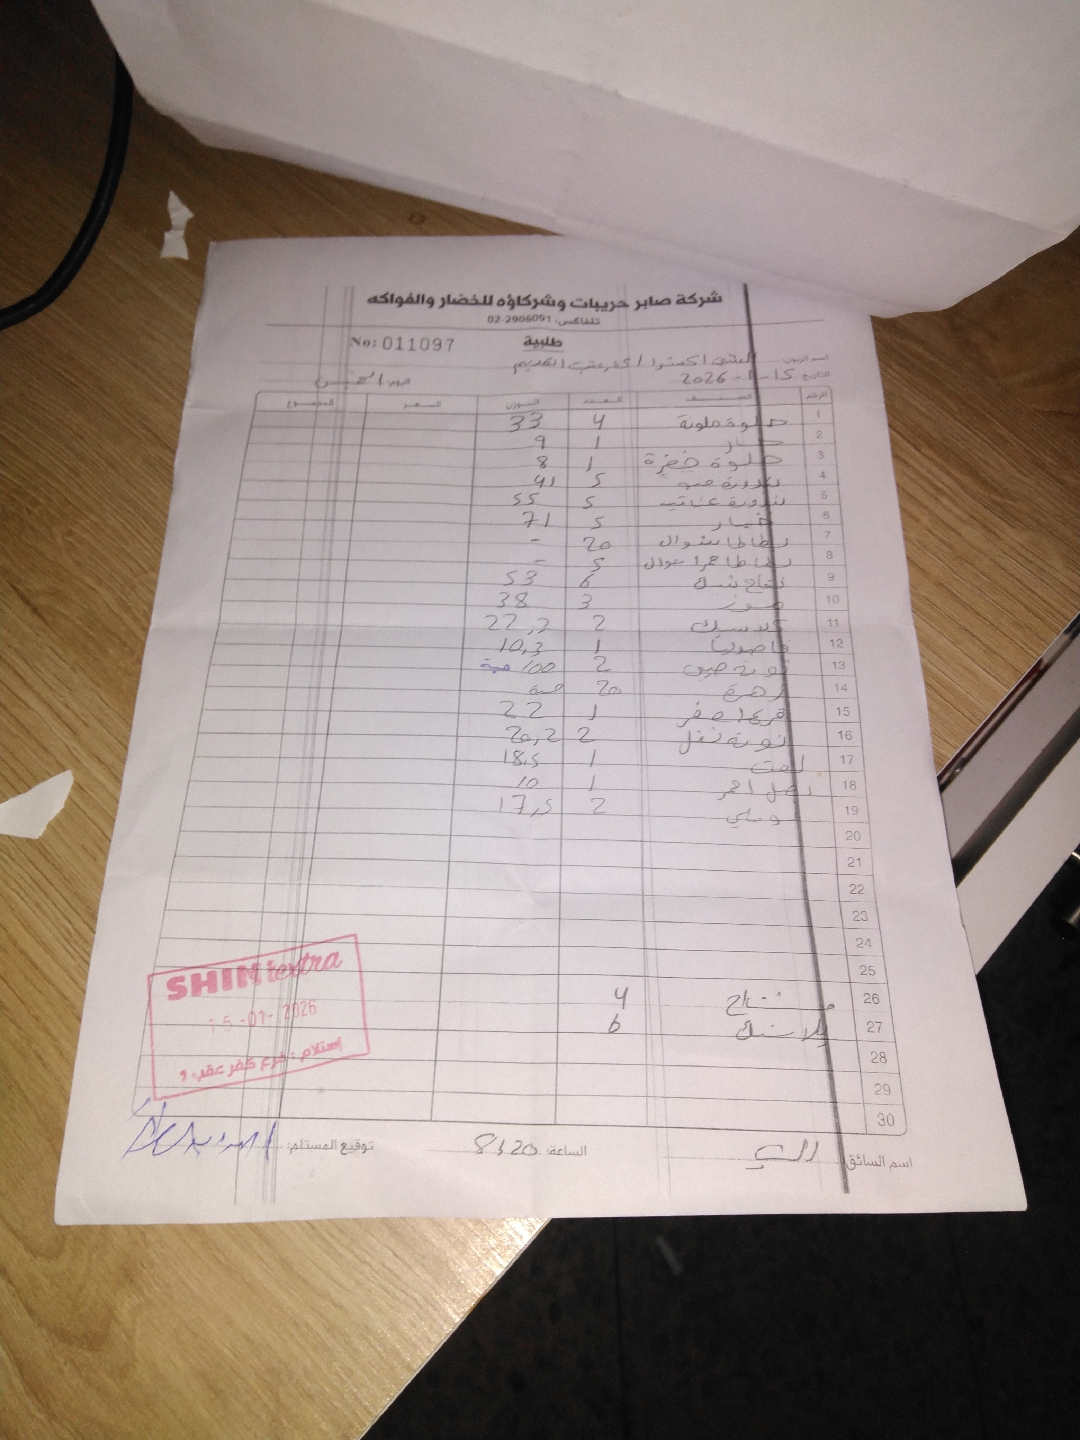 شركة صابر حريبات وشركاؤه للخضار والفواكه
تلفاكس: 02-2906091
طلبية
No: 011097
اسم الزبون: اكسترا / كفر عقب القديم
التاريخ: 15-1-2026 اليوم: الخميس
الرقم الصنف العدد الوزن السعر المجموع
1 حلوة ملونة 4 33
2 حار 1 9
3 حلوة خضرة 1 8
4 بندورة 5 41
5 بندورة عناقيد 5 55
6 خيار 5 71
7 بطاطا شوال 20 -
8 بطاطا حمرا شوال 5 -
9 تفاح 6 53
10 موز 3 38
11 كلاسيك 2 22,2
12 فاصوليا 1 10,3
13 2 100 حبة
14 زهرة 20 حبة
15 قرع اصفر 1 22
16 2 20,2
17 لفت 1 18,5
18 بصل احمر 1 10
19 2 17,5
20
21
22
23
24
25
26 4
27 بلاستك 6
28
29
30
اسم السائق: الساعة: 8:20 توقيع المستلم:
SHINI extra
15-01-2026
إستلام: فرع كفر عقب